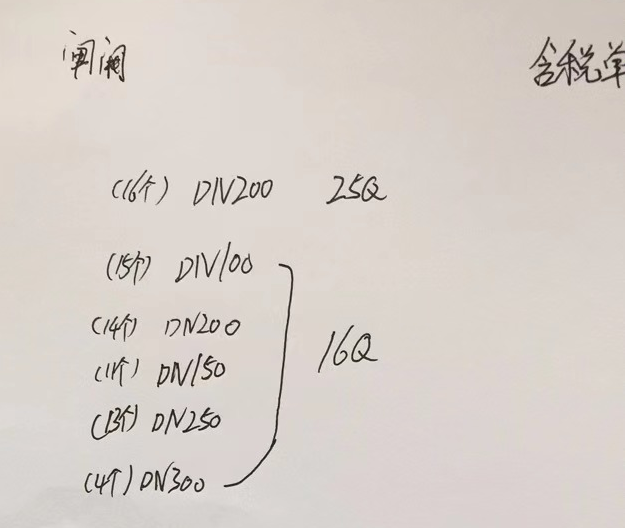 闸阀 含税单
(16个) DN200 25Q
(15个) DN100
(14个) DN200
(11个) DN150 16Q
(13个) DN250
(4个) DN300